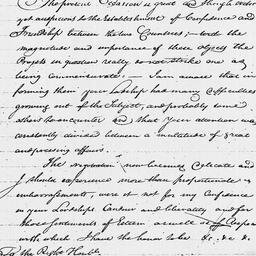 The present Occasion is great and tho' in order
yet auspicious to the establishment of Confidence and
Friendship between the two Countries;—towards the
magnitude and importance of these objects the
Projects in question really do not strike one as
being commensurate. — I am aware that in
forming them your Lordship had many difficulties
growing out of the Subject, and probably some
others to encounter and that your attention was
constantly divided between a multitude of great
and pressing affairs.
This negotiation now becomes delicate and
I should experience more than proportionate
embarrassments, were it not for my Confidence
in your Lordships Candour and liberality and for
those sentiments of Esteem as well as of Respect
with which I have the honor to be &c. &c. &c.
To the Right Honble